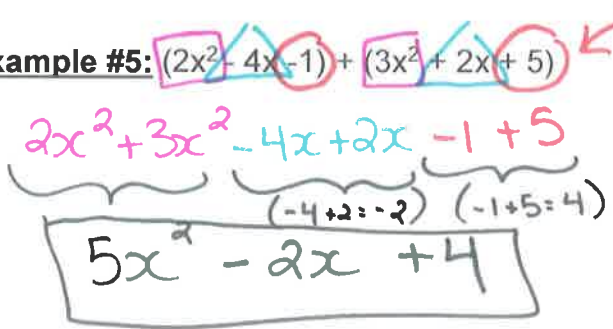 xample #5: (2x² - 4x - 1) + (3x² + 2x + 5)
2x² + 3x² - 4x + 2x - 1 + 5
(-4+2=-2) (-1+5=4)
5x² - 2x + 4